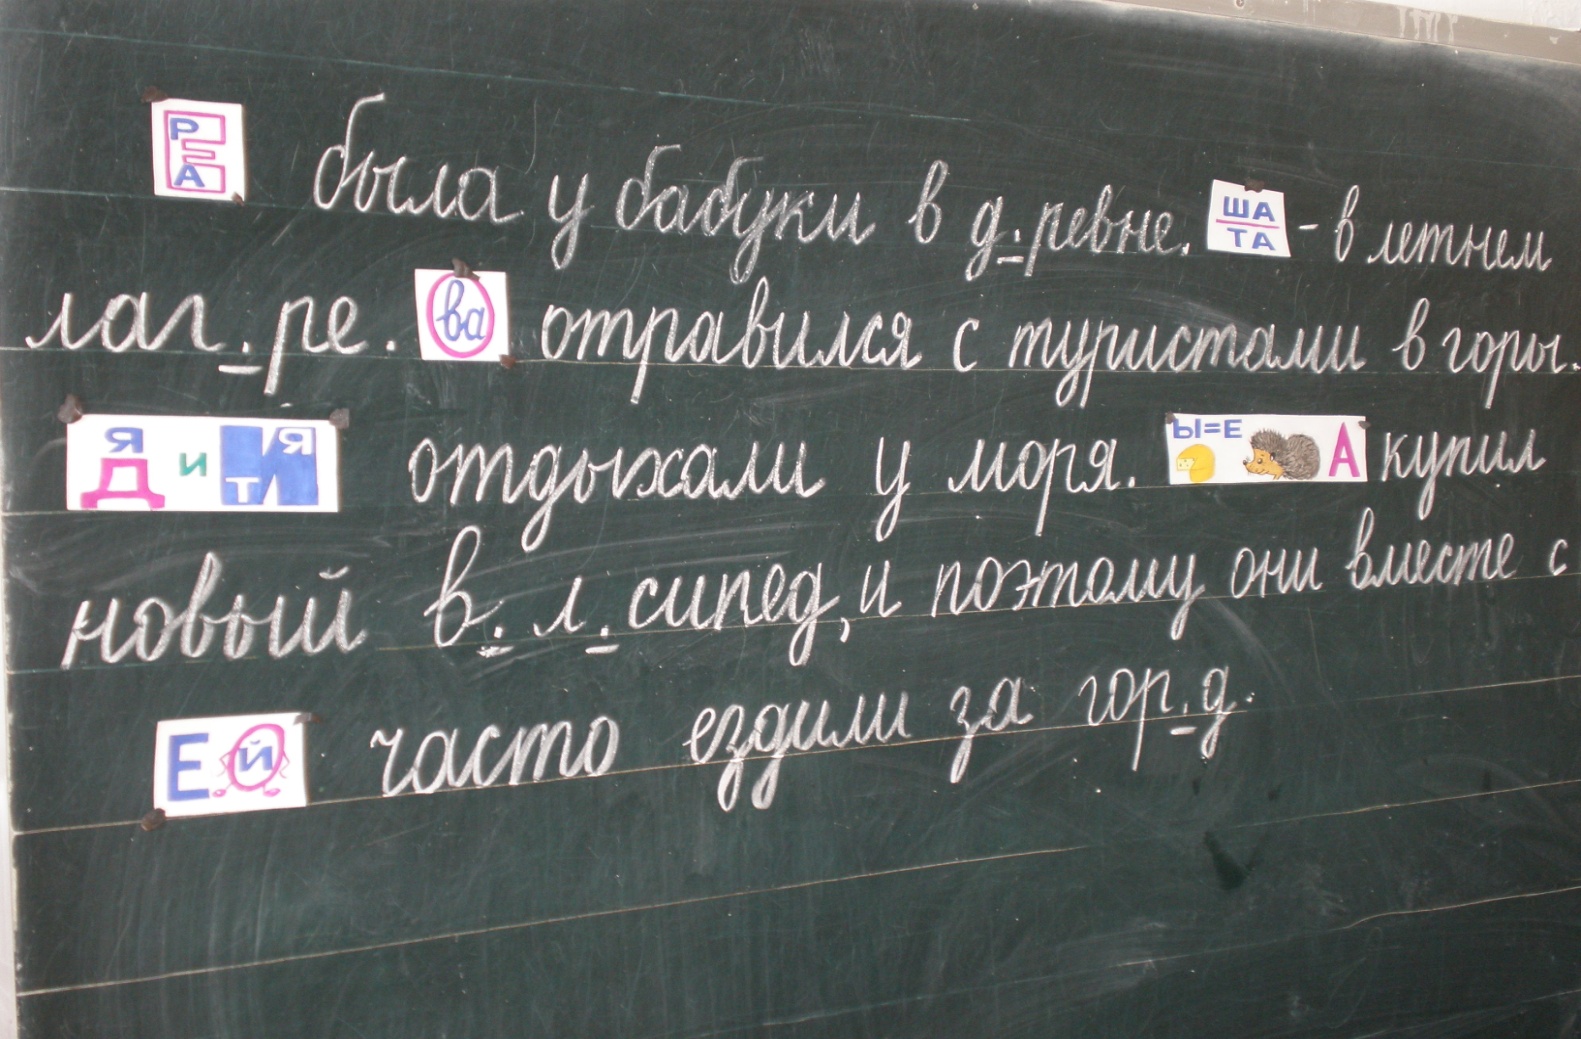 РЕА была у бабуки в д.ревне. ША ТА - в летнем
лаг.ре. ва отравился с туристами в горы.
Я Д и Я Т отдыхали у моря. Ы=Е А купил
новый в.л.сипед, и поэтому они вместе с
Е Й часто ездили за гор.д.